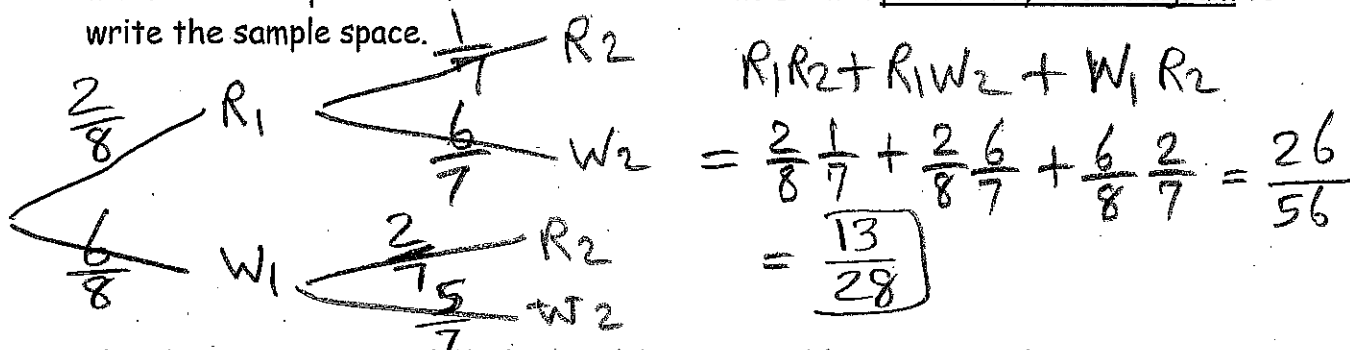 write the sample space.
1/7 R2
2/8 R1
6/7 W2
6/8 W1
2/7 R2
5/7 W2
R1R2 + R1W2 + W1 R2
= 2/8 1/7 + 2/8 6/7 + 6/8 2/7 = 26/56
= 13/28